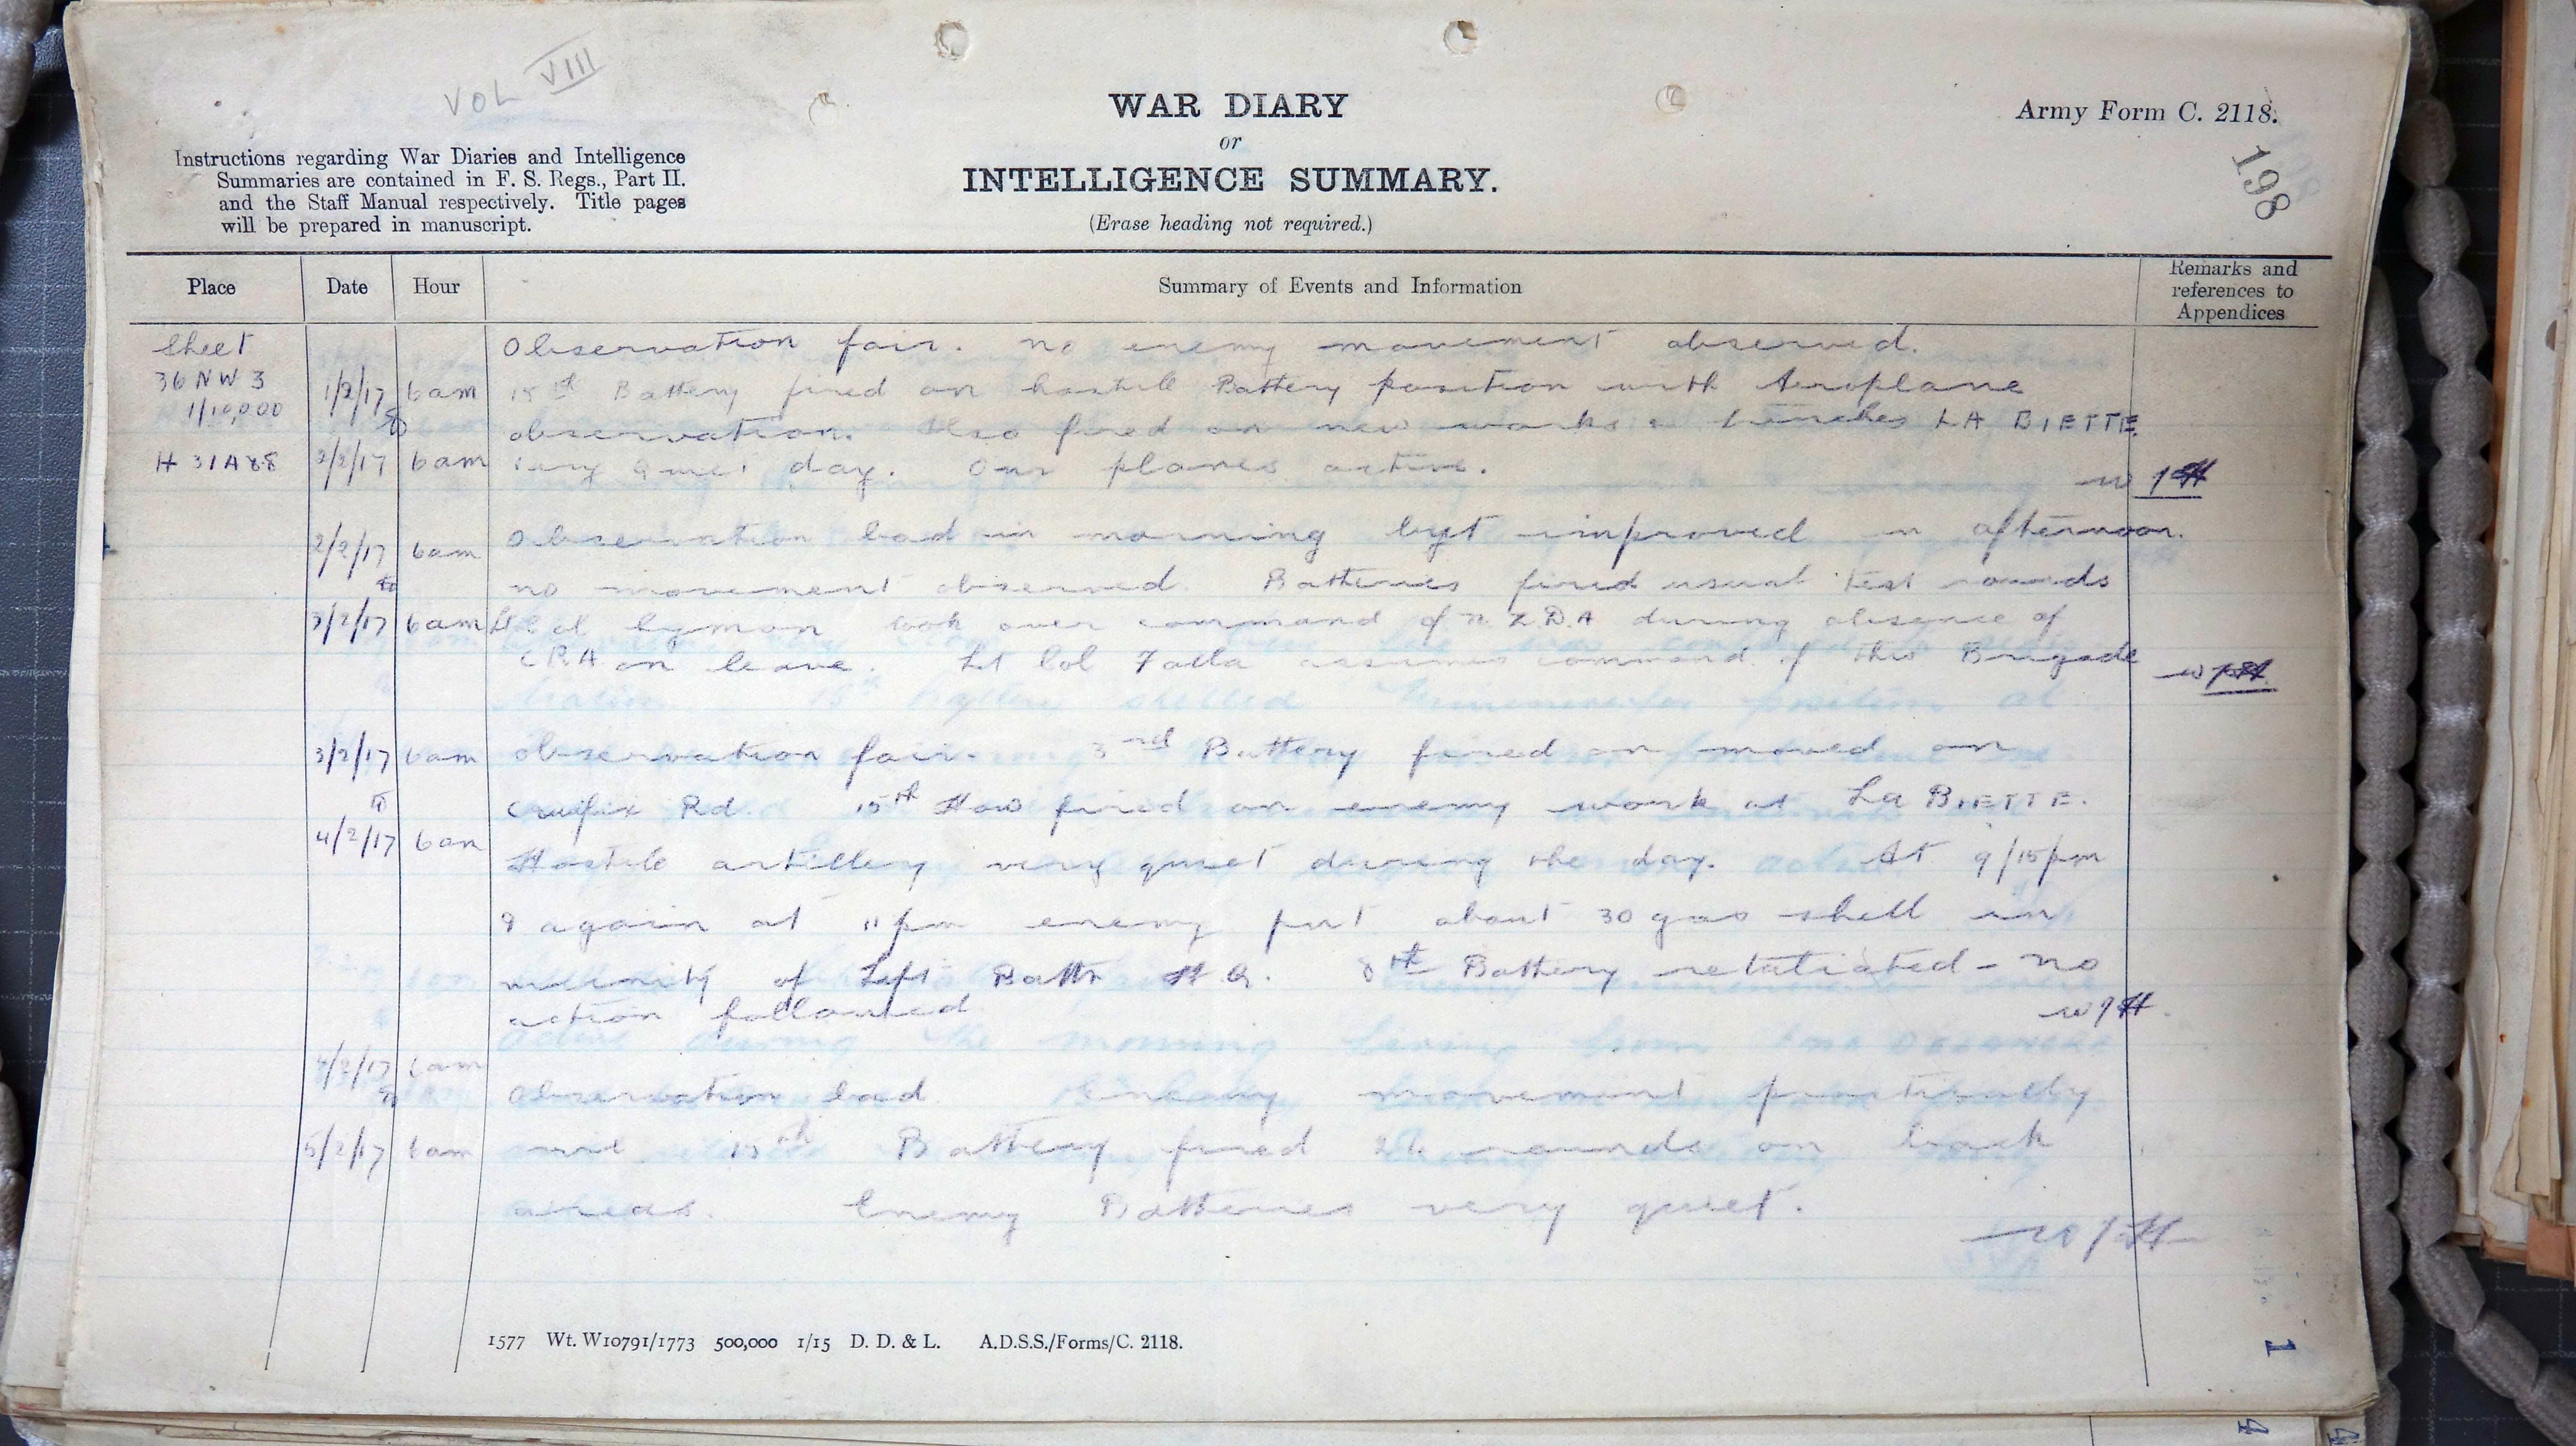 VOL VIII
WAR DIARY
or
INTELLIGENCE SUMMARY.
(Erase heading not required.)
Army Form C. 2118.
198
Instructions regarding War Diaries and Intelligence
Summaries are contained in F. S. Regs., Part II.
and the Staff Manual respectively. Title pages
will be prepared in manuscript.
Place Date Hour Summary of Events and Information Remarks and references to Appendices
Sheet Observation fair. no enemy movement observed.
36 NW 3 1/2/17 6am 15th Battery fired on hostile Battery position with Aeroplane
1/10,000 observation. Also fired on new works & trenches LA BIETTE.
H 31A88 2/2/17 6am very quiet day. Our planes active.
2/2/17 6am Observation bad in morning but improved in afternoon.
to no movement observed. Batteries fired usual test rounds
3/2/17 6am Lt Col Symon took over command of N.Z.D.A during absence of
CRA on leave. Lt Col Falla assumes command of this Brigade
3/2/17 6am Observation fair. 3rd Battery fired on moved on
to Crucifix Rd 15th How fired on enemy work at La BIETTE.
4/2/17 6am Hostile artillery very quiet during the day. At 9/15pm
& again at 11pm enemy put about 30 gas shell in
vicinity of Left Battn H.Q. 8th Battery retaliated - no
action followed
4/2/17 6am
to Observation bad Enemy movement practically
5/2/17 6am nil 15th Battery fired 26 rounds on back
areas. Enemy Batteries very quiet.
1577 Wt. W10791/1773 500,000 1/15 D. D. & L. A.D.S.S./Forms/C. 2118.
1